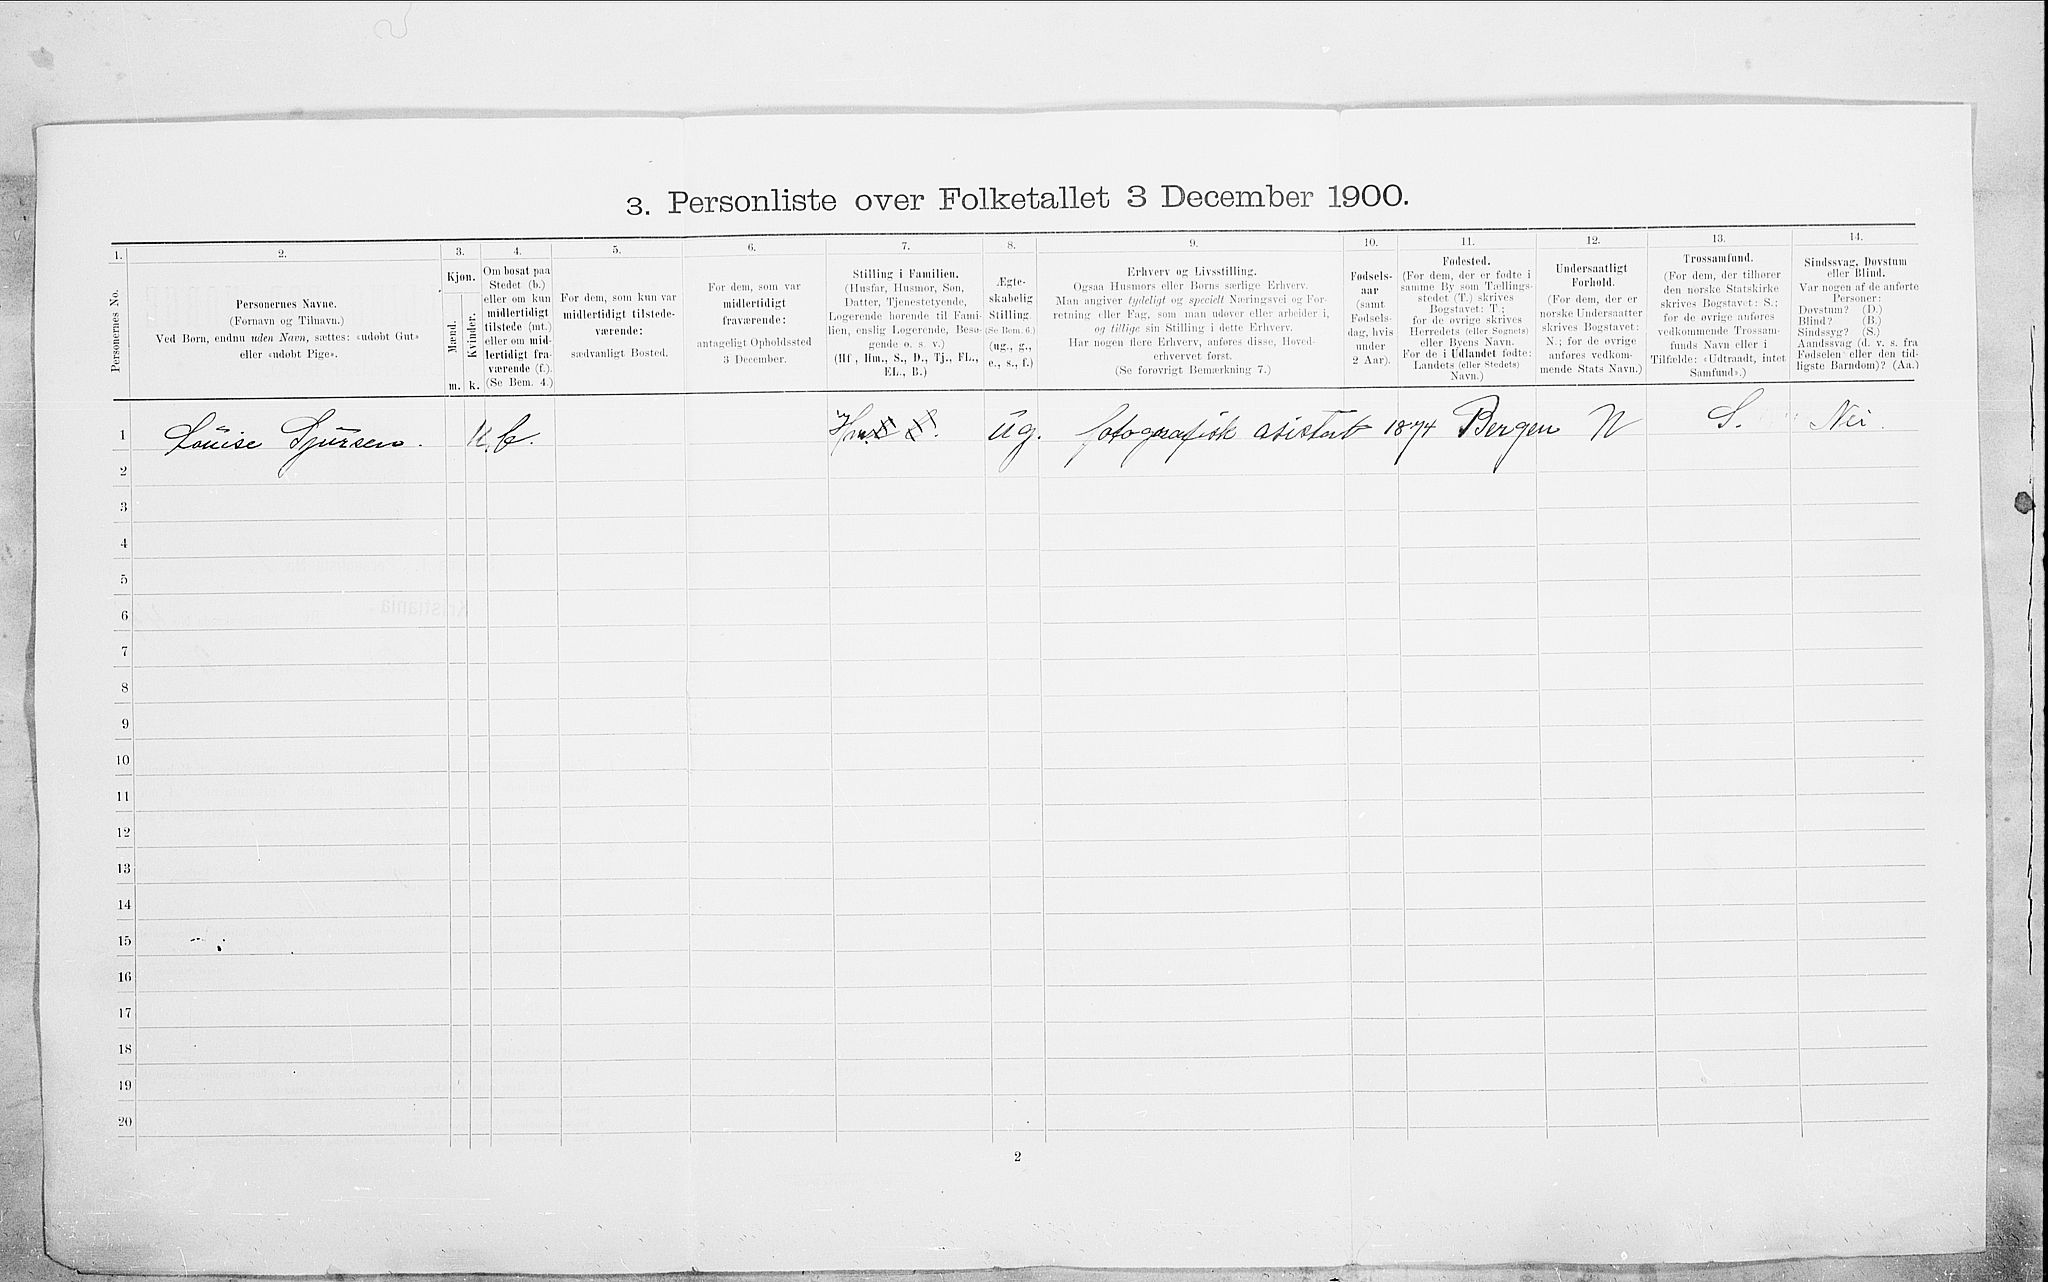 3. Personliste over Folketallet 3 December 1900.
1. 2. 3. 4. 5. 6. 7. 8. 9. 10. 11. 12. 13. 14.
Personernes No.
Personernes Navne.
(Fornavn og Tilnavn.)
Ved Børn, endnu uden Navn, sættes: «udøbt Gut»
eller «udøbt Pige».
Kjøn.
Mænd.
Kvinder.
m. k.
Om bosat paa
Stedet (b.)
eller om kun
midlertidigt
tilstede (mt.)
eller om mid-
lertidigt fra-
værende (f.).
(Se Bem. 4.)
For dem, som kun var
midlertidigt tilstede-
værende:
sædvanligt Bosted.
For dem, som var
midlertidigt
fraværende:
antageligt Opholdssted
3 December.
Stilling i Familien.
(Husfar, Husmor, Søn,
Datter, Tjenestetyende,
Logerende hørende til Fami-
lien, enslig Logerende, Besø-
gende o. s. v.)
(Hf, Hm., S., D., Tj., FL.,
EL., B.)
Ægte-
skabelig
Stilling.
(Se Bem. 6.)
(ug., g.,
e., s., f.)
Erhverv og Livsstilling.
Ogsaa Husmors eller Børns særlige Erhverv.
Man angiver tydeligt og specielt Næringsvei og For-
retning eller Fag, som man udøver eller arbeider i,
og tillige sin Stilling i dette Erhverv.
Har nogen flere Erhverv, anføres disse, Hoved-
erhvervet først.
(Se forøvrigt Bemærkning 7.)
Fødsels-
aar
(samt
Fødsels-
dag, hvis
under
2 Aar).
Fødested.
(For dem, der er fødte i
samme By som Tællings-
stedet (T.) skrives
Bogstavet: T;
for de øvrige skrives
Herredets (eller Sognets)
eller Byens Navn.
For de i Udlandet fødte:
Landets (eller Stedets)
Navn.)
Undersaatligt
Forhold.
(For dem, der er
norske Undersaatter
skrives Bogstavet:
N.; for de øvrige
anføres vedkom-
mende Stats Navn.)
Trossamfund.
(For dem, der tilhører
den norske Statskirke
skrives Bogstavet: S.;
for de øvrige anføres
vedkommende Trossam-
funds Navn eller i
Tilfælde: «Udtraadt, intet
Samfund».)
Sindssvag, Døvstum
eller Blind.
Var nogen af de anførte
Personer:
Døvstum? (D.)
Blind? (B.)
Sindssyg? (S.)
Aandssvag (d. v. s. fra
Fødselen eller den tid-
ligste Barndom)? (Aa.)
1 Louise Sjursen. K b. Hm. ug. fotografisk asistent 1874 Bergen N S. Nei.
2
3
4
5
6
7
8
9
10
11
12
13
14
15
16
17
18
19
20
2